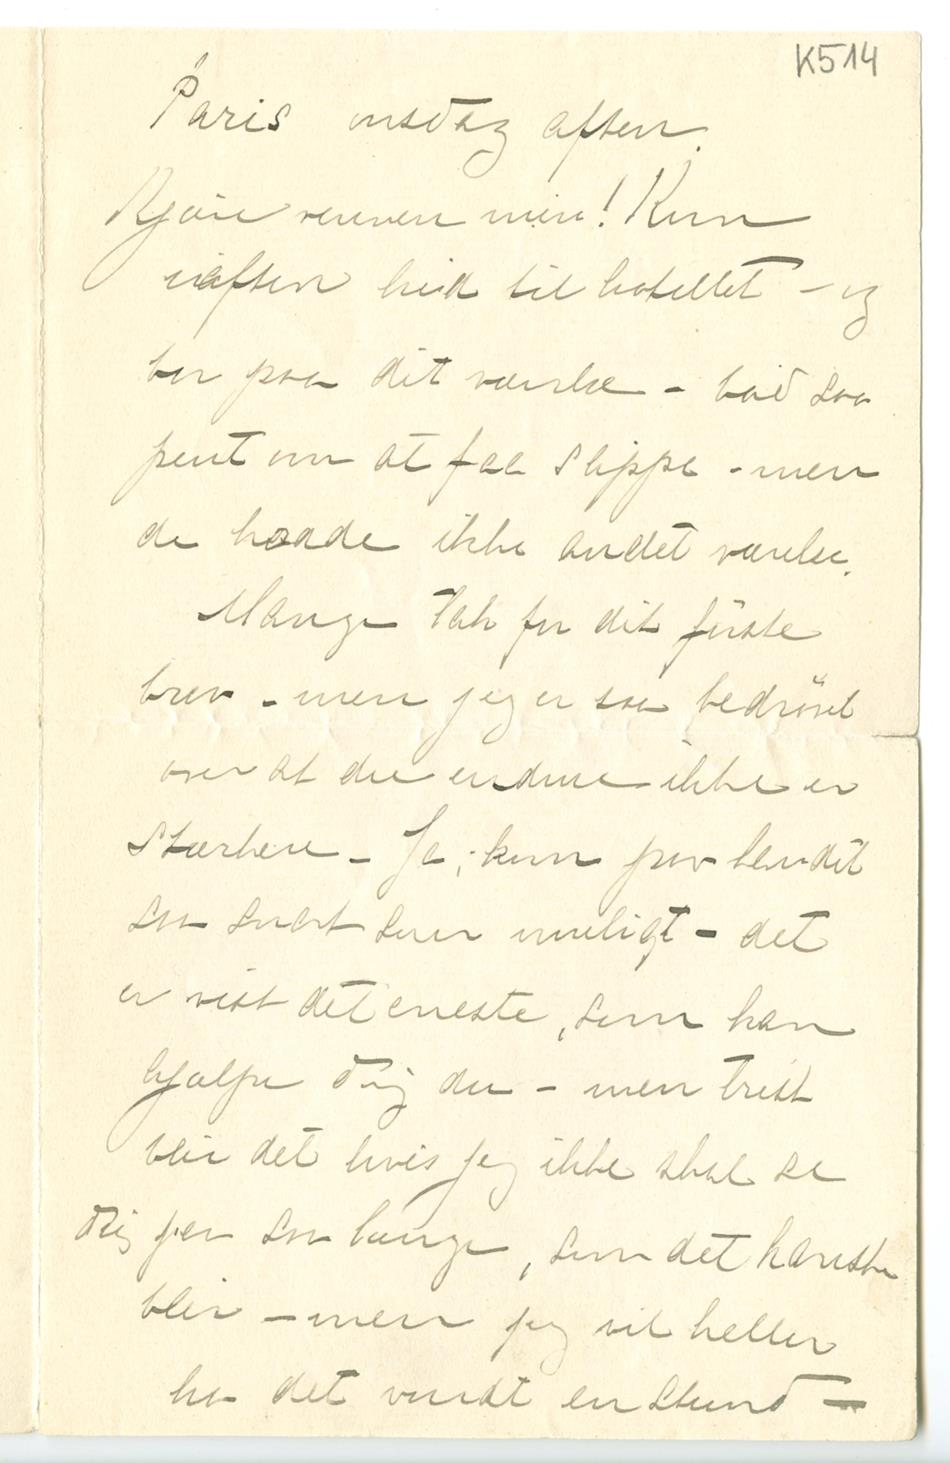 K514
Paris onsdag aften.
Kjære vennen min! Kom
iaften hid til hotellet – og
bor paa dit værelse – bad saa
pent om at faa slippe – men
de hadde ikke andet værelse.
Mange tak for dit første
brev – men jeg er saa bedrøvet
over at du endnu ikke er
stærkere – Ja, kom paa landet
saa snart som muligt – det
er vist det eneste, som kan
hjælpe dig du – men trist
blir det hvis jeg ikke skal se
dig paa saa længe, som det kanske
blir – men jeg vil heller
ha det vondt en stund –